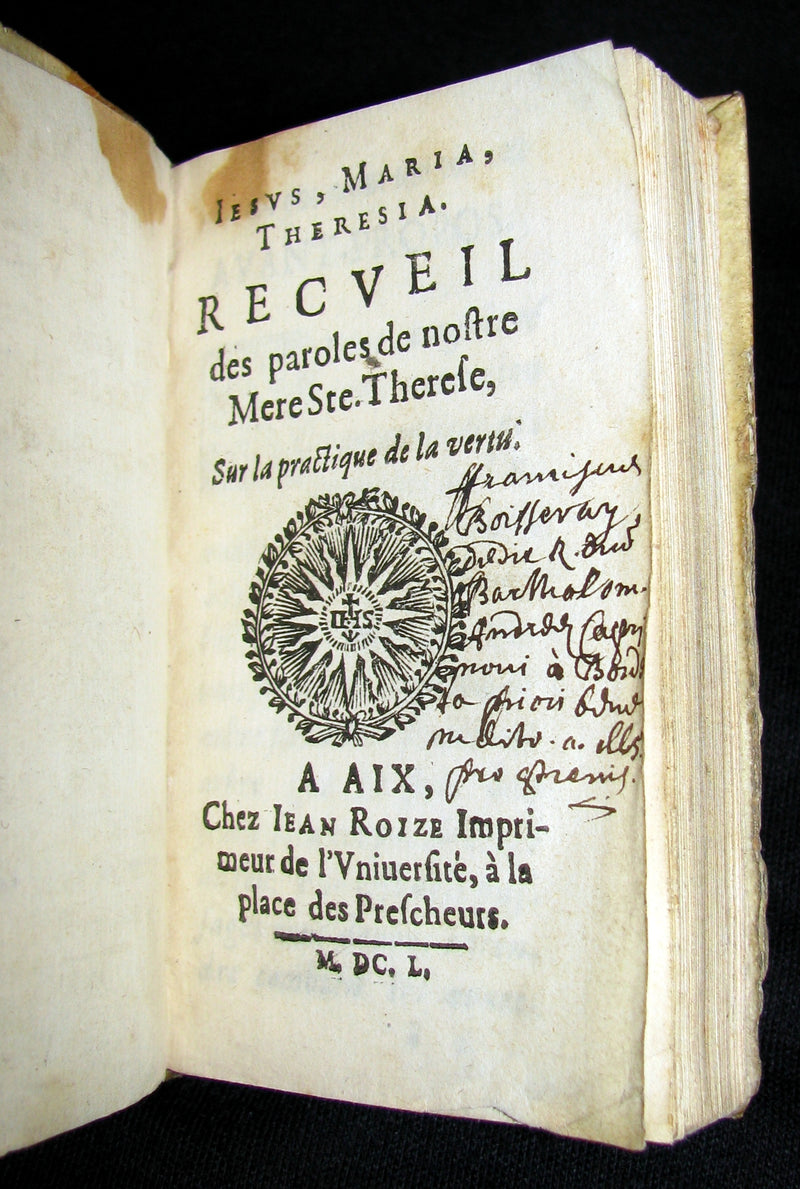 IESVS, MARIA,
THERESIA.
RECVEIL
des paroles de noſtre
Mere Ste. Thereſe,
Sur la practique de la vertu.
IHS
ffranciſcus
Boisseray
Bartholom.
à
A AIX,
pro
Chez IEAN ROIZE Impri-
meur de l'Vniuerſité, à la
place des Preſcheurs.
M. DC. L.